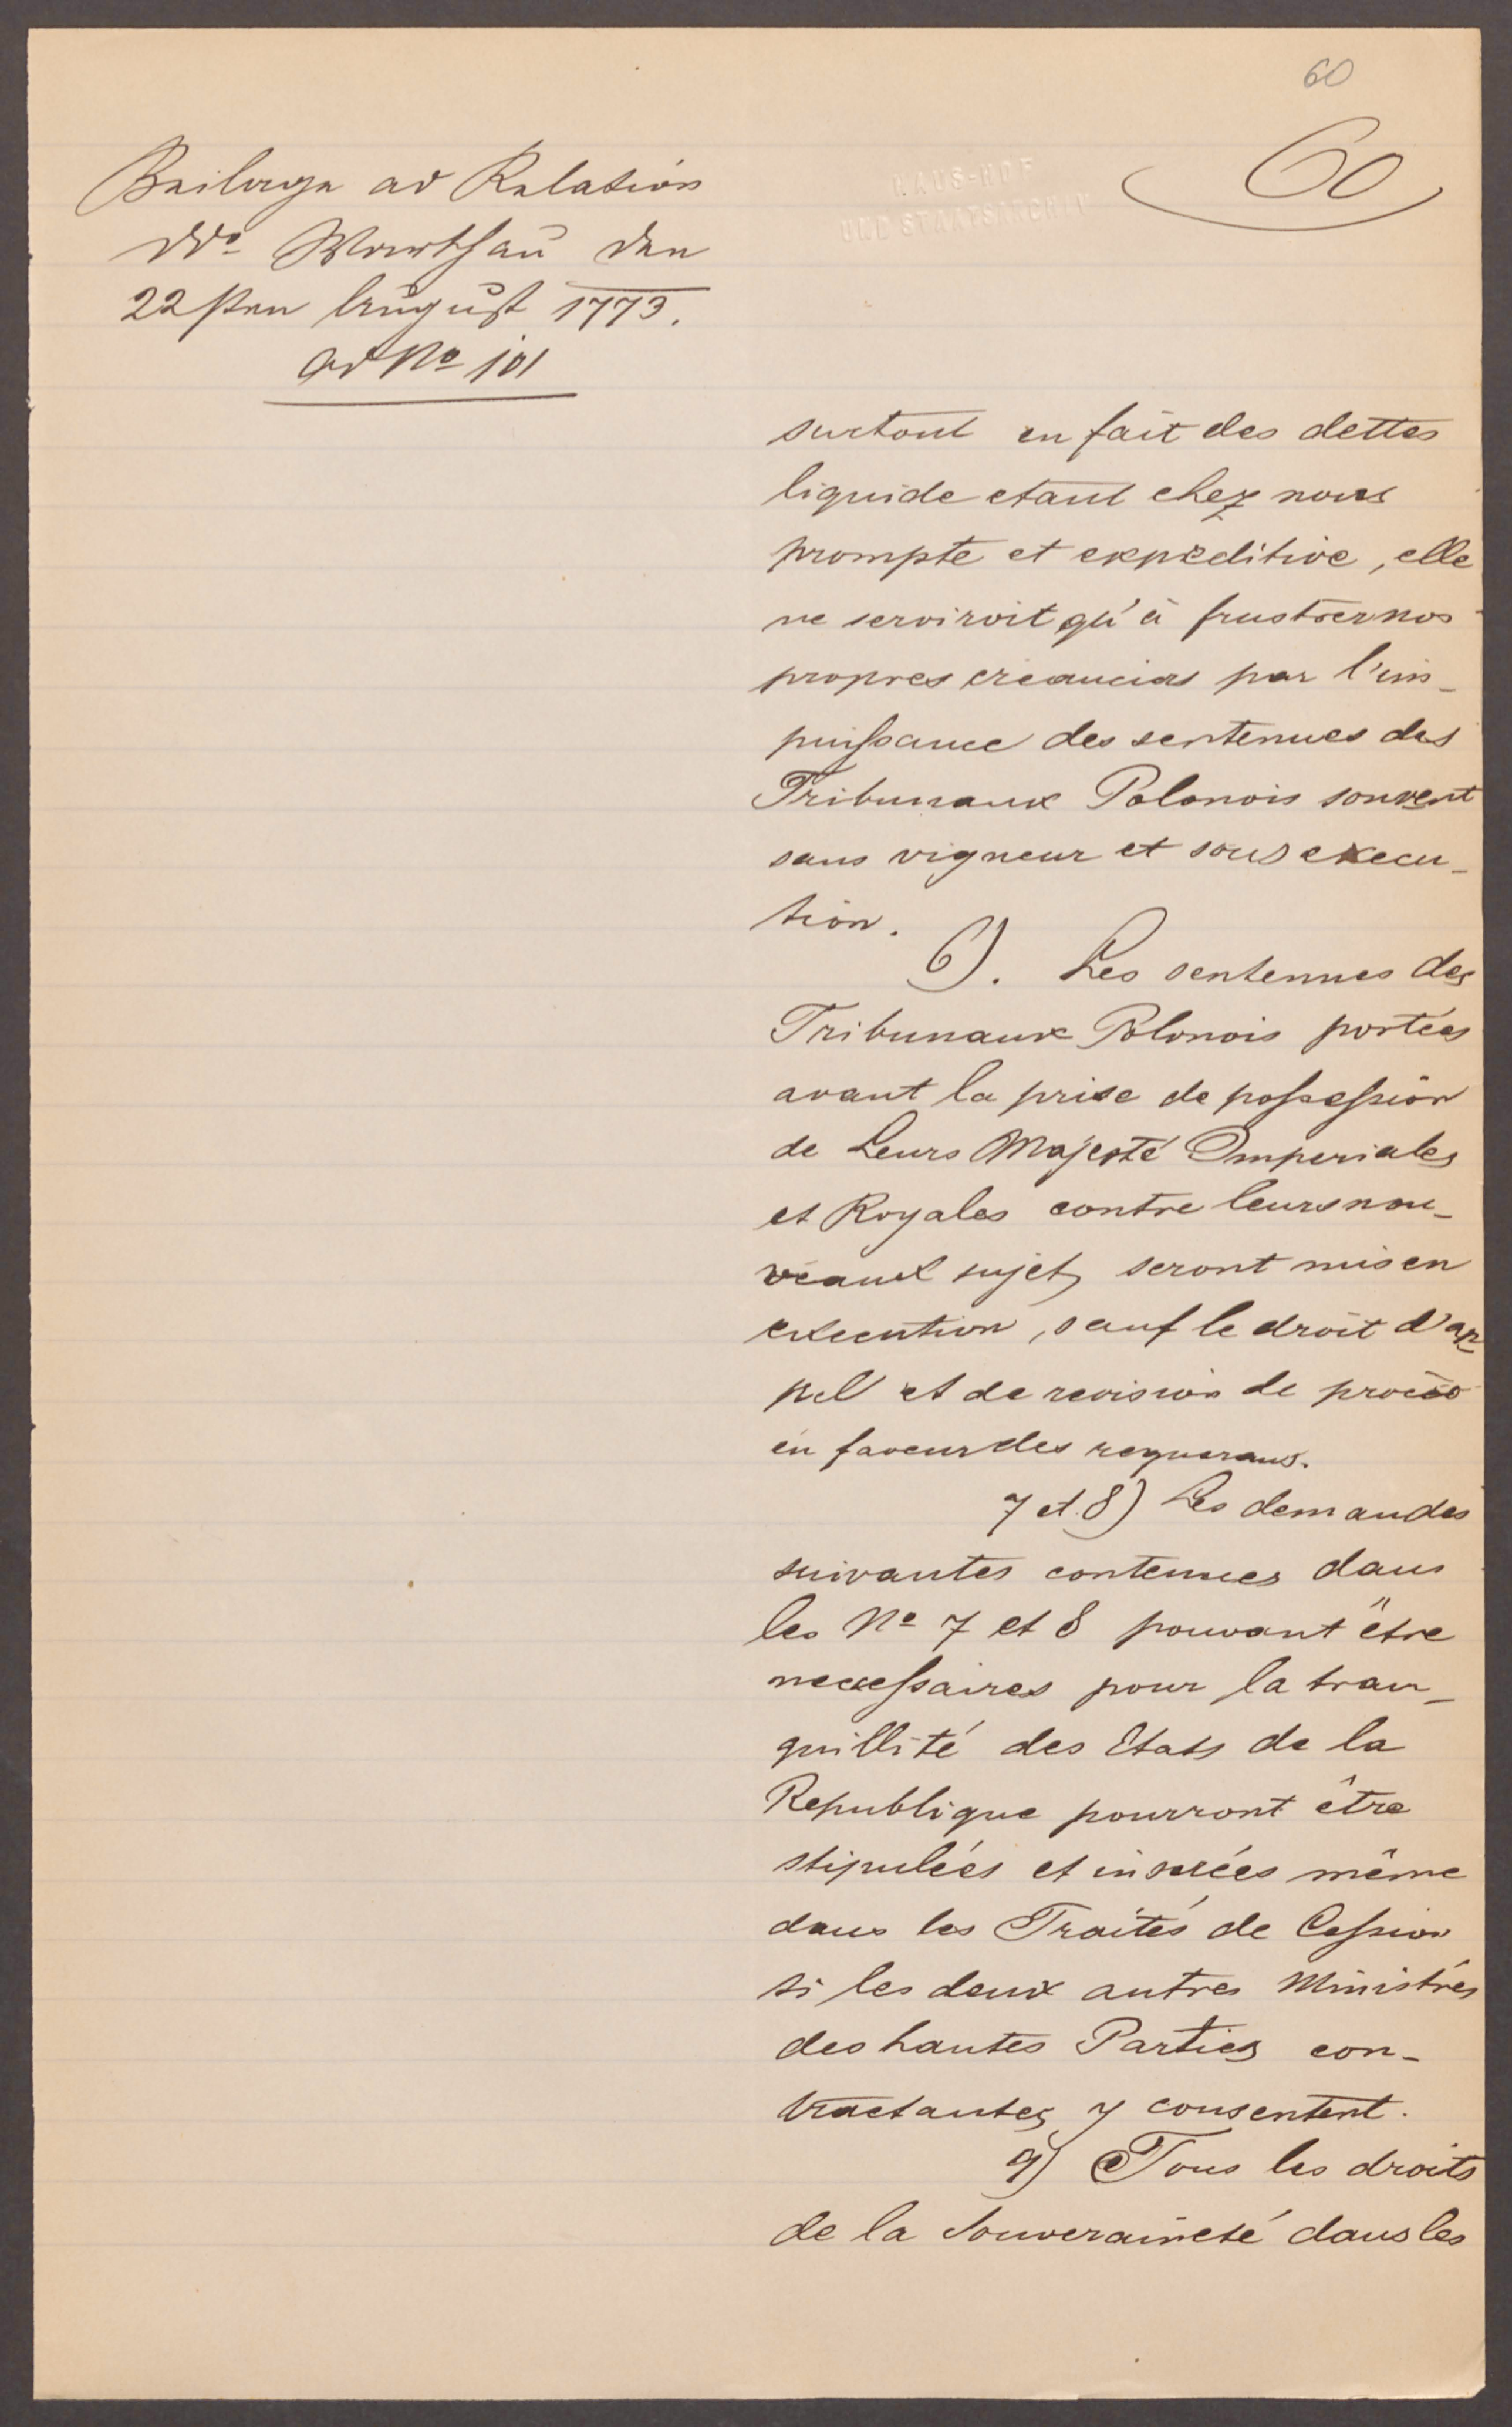 60
60
HAUS-HOF
UND STAATSARCHIV
Beilage ad Relation
ddo Warschau den
22sten August 1773.
ad No 101
surtout en fait des dettes
liquide etant chez nous
prompte et expeditive, elle
ne serviroit qu'à frustrer nos
propres creanciers par l'im-
puissance des sentences des
Tribunaux Polonois souvent
sans vigueur et sans execu-
tion.
6). Les sentences des
Tribunaux Polonois portées
avant la prise de possession
de Leurs Majesté Imperiales
et Royales contre leurs nou-
veaux sujets seront mis en
execution, sauf le droit d'ap-
pel et de revision de procès
en faveur des requerans.
7 et 8) Les demandes
suivantes contenues dans
les No 7 et 8 pouvant être
necessaires pour la tran-
quillité des Etats de la
Republique pourront être
stipulées et inserées même
dans les Traités de Cession
si les deux autres Ministres
des hautes Parties con-
tractantes y consentent.
9) Tous les droits
de la Souveraineté dans les